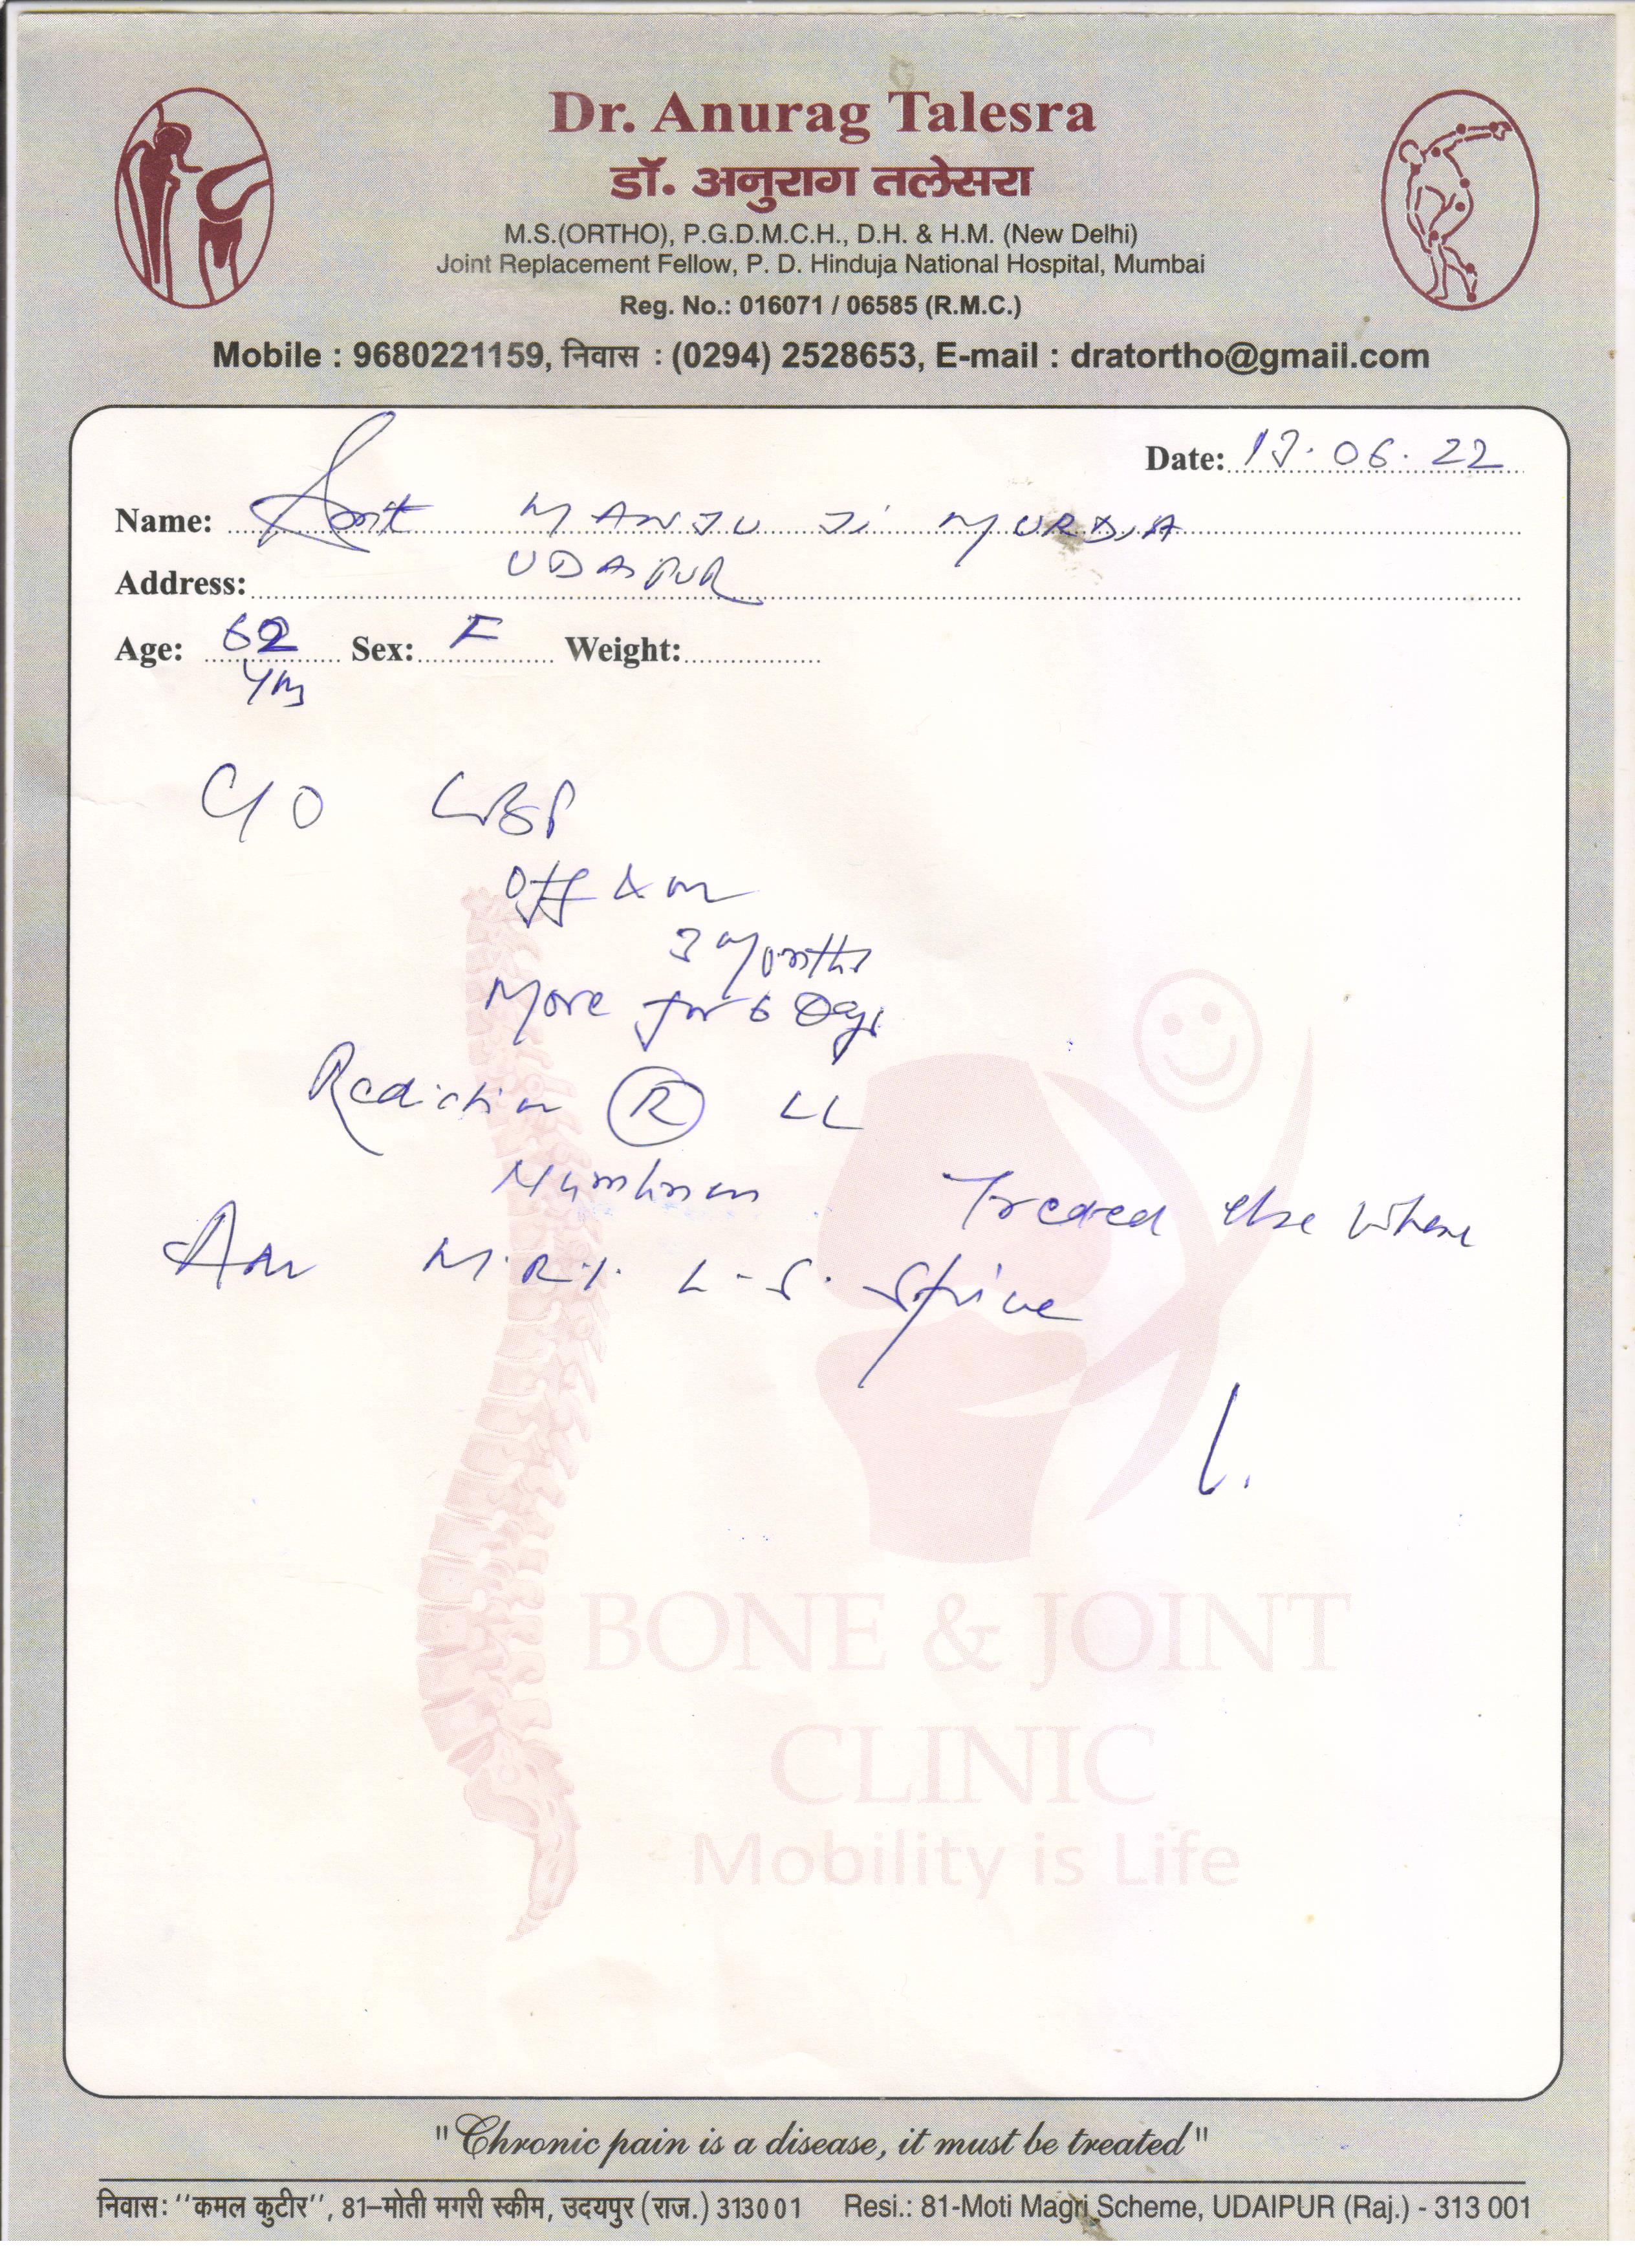 Dr. Anurag Talesra
डॉ. अनुराग तलेसरा
M.S.(ORTHO), P.G.D.M.C.H., D.H. & H.M. (New Delhi)
Joint Replacement Fellow, P. D. Hinduja National Hospital, Mumbai
Reg. No.: 016071 / 06585 (R.M.C.)
Mobile : 9680221159, निवास : (0294) 2528653, E-mail : dratortho@gmail.com
Date: 13.06.22
Name: Smt MANJU Ji MURDIA
Address: UDAIPUR
Age: 62 Sex: F Weight:
Yrs
C/O LBP
Off & on
3 Months
More for 6 Days
Radiation R LL
Numbness Treated else where
Adv M.R.I. L-S. Spine
BONE & JOINT
CLINIC
Mobility is Life
"Chronic pain is a disease, it must be treated"
निवास: ''कमल कुटीर'', 81–मोती मगरी स्कीम, उदयपुर (राज.) 313001 Resi.: 81-Moti Magri Scheme, UDAIPUR (Raj.) - 313 001